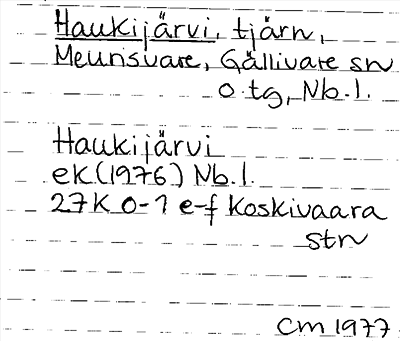 Haukijärvi, tjärn,
Meurisvare, Gällivare sn
o tg, Nb.l.
Haukijärvi
ek(1976) Nb.l.
27K 0-1 e-f Koskivaara
str
CM 1977